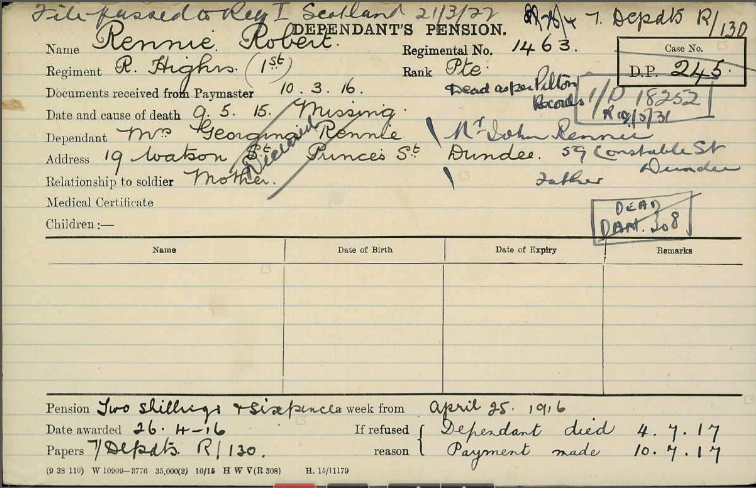 File passed to Reg I Scotland 21/3/22 7. Depdts R/130
DEPENDANT'S PENSION.
Name Rennie Robert. Regimental No. 1463.
Case No.
D.P. 245.
Regiment R. Highrs. (1st) Rank Pte
Documents received from Paymaster 10.3.16. Dead as per Records
1/D 18252
Date and cause of death 9.5.15. Missing.
Dependant Mrs Georgina Rennie Mr John Rennie
Deceased
Address 19 Watson St Princes St Dundee. 59 Constable St Dundee
Relationship to soldier Mother. Father
Medical Certificate
DEAD
Children :—
Name Date of Birth Date of Expiry Remarks
Pension Two shillings & sixpence a week from April 25. 1916
Date awarded 26.4-16 If refused { Dependant died 4.7.17
Papers 7/Depdts R/130. reason Payment made 10.7.17
(9 38 110) W 10909—3776 35,000(2) 10/15 H W V(R 308) H. 15/11179